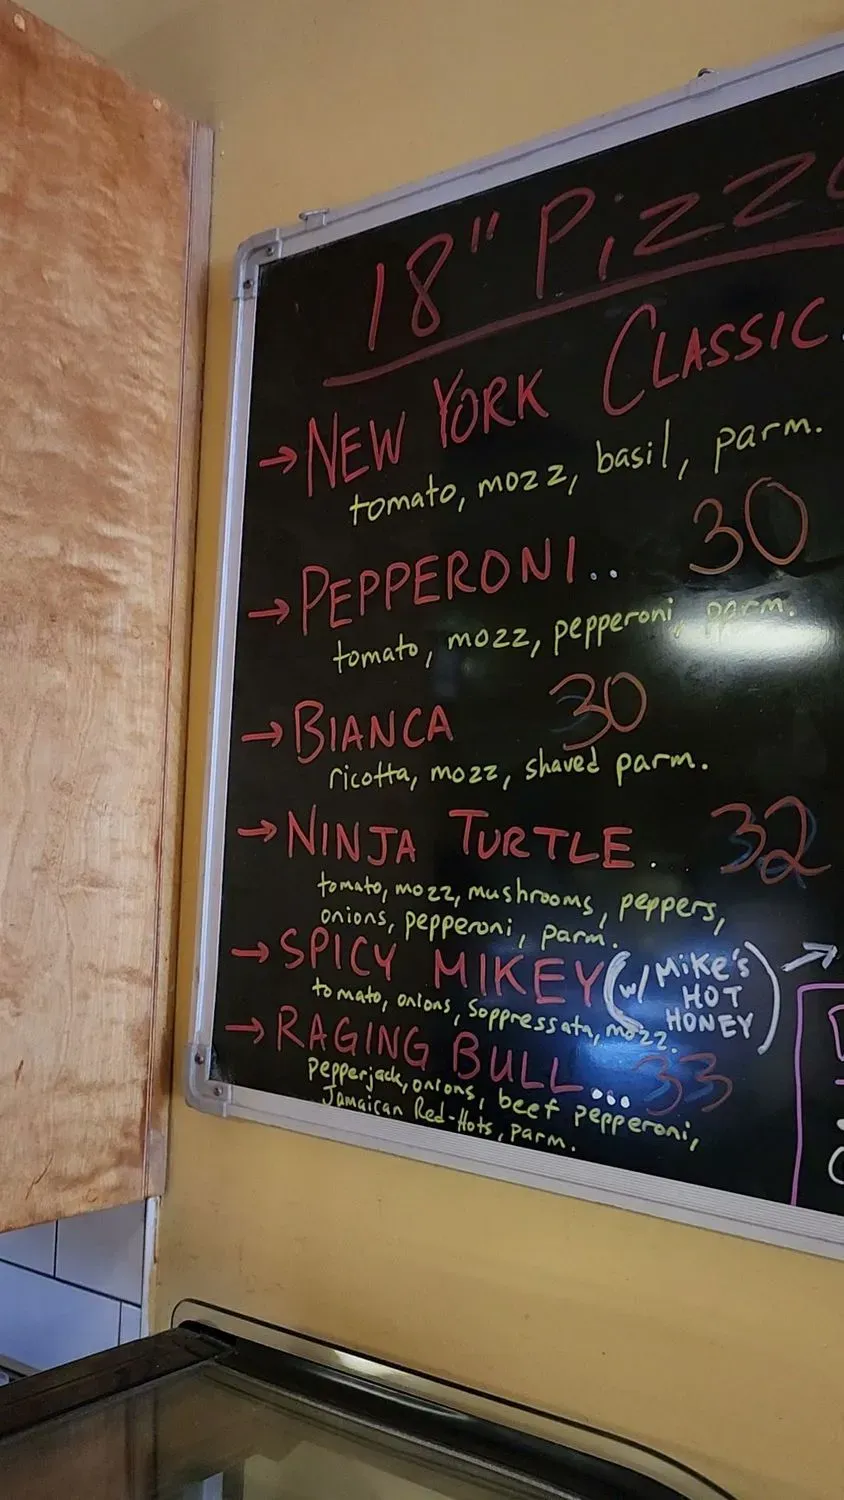 18" Pizza
→ NEW YORK CLASSIC.
tomato, mozz, basil, parm.
→ PEPPERONI.. 30
tomato, mozz, pepperoni, parm.
→ BIANCA 30
ricotta, mozz, shaved parm.
→ NINJA TURTLE. 32
tomato, mozz, mushrooms, peppers,
onions, pepperoni, parm.
→ SPICY MIKEY (w/ MIKE'S HOT HONEY) →
tomato, onions, Soppressata, mozz.
→ RAGING BULL... 33
Pepperjack, onions, beef pepperoni,
Jamaican Red-Hots, parm.